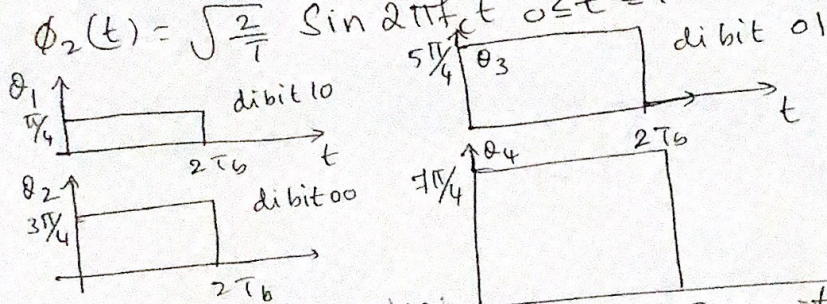 ϕ₂(t) = √(2/T) Sin 2πf_c t 0≤t≤
θ₁
π/4
dibit 10
2Tb
t
θ₂
3π/4
dibit 00
2Tb
5π/4
θ₃
dibit 01
2Tb
t
θ₄
7π/4